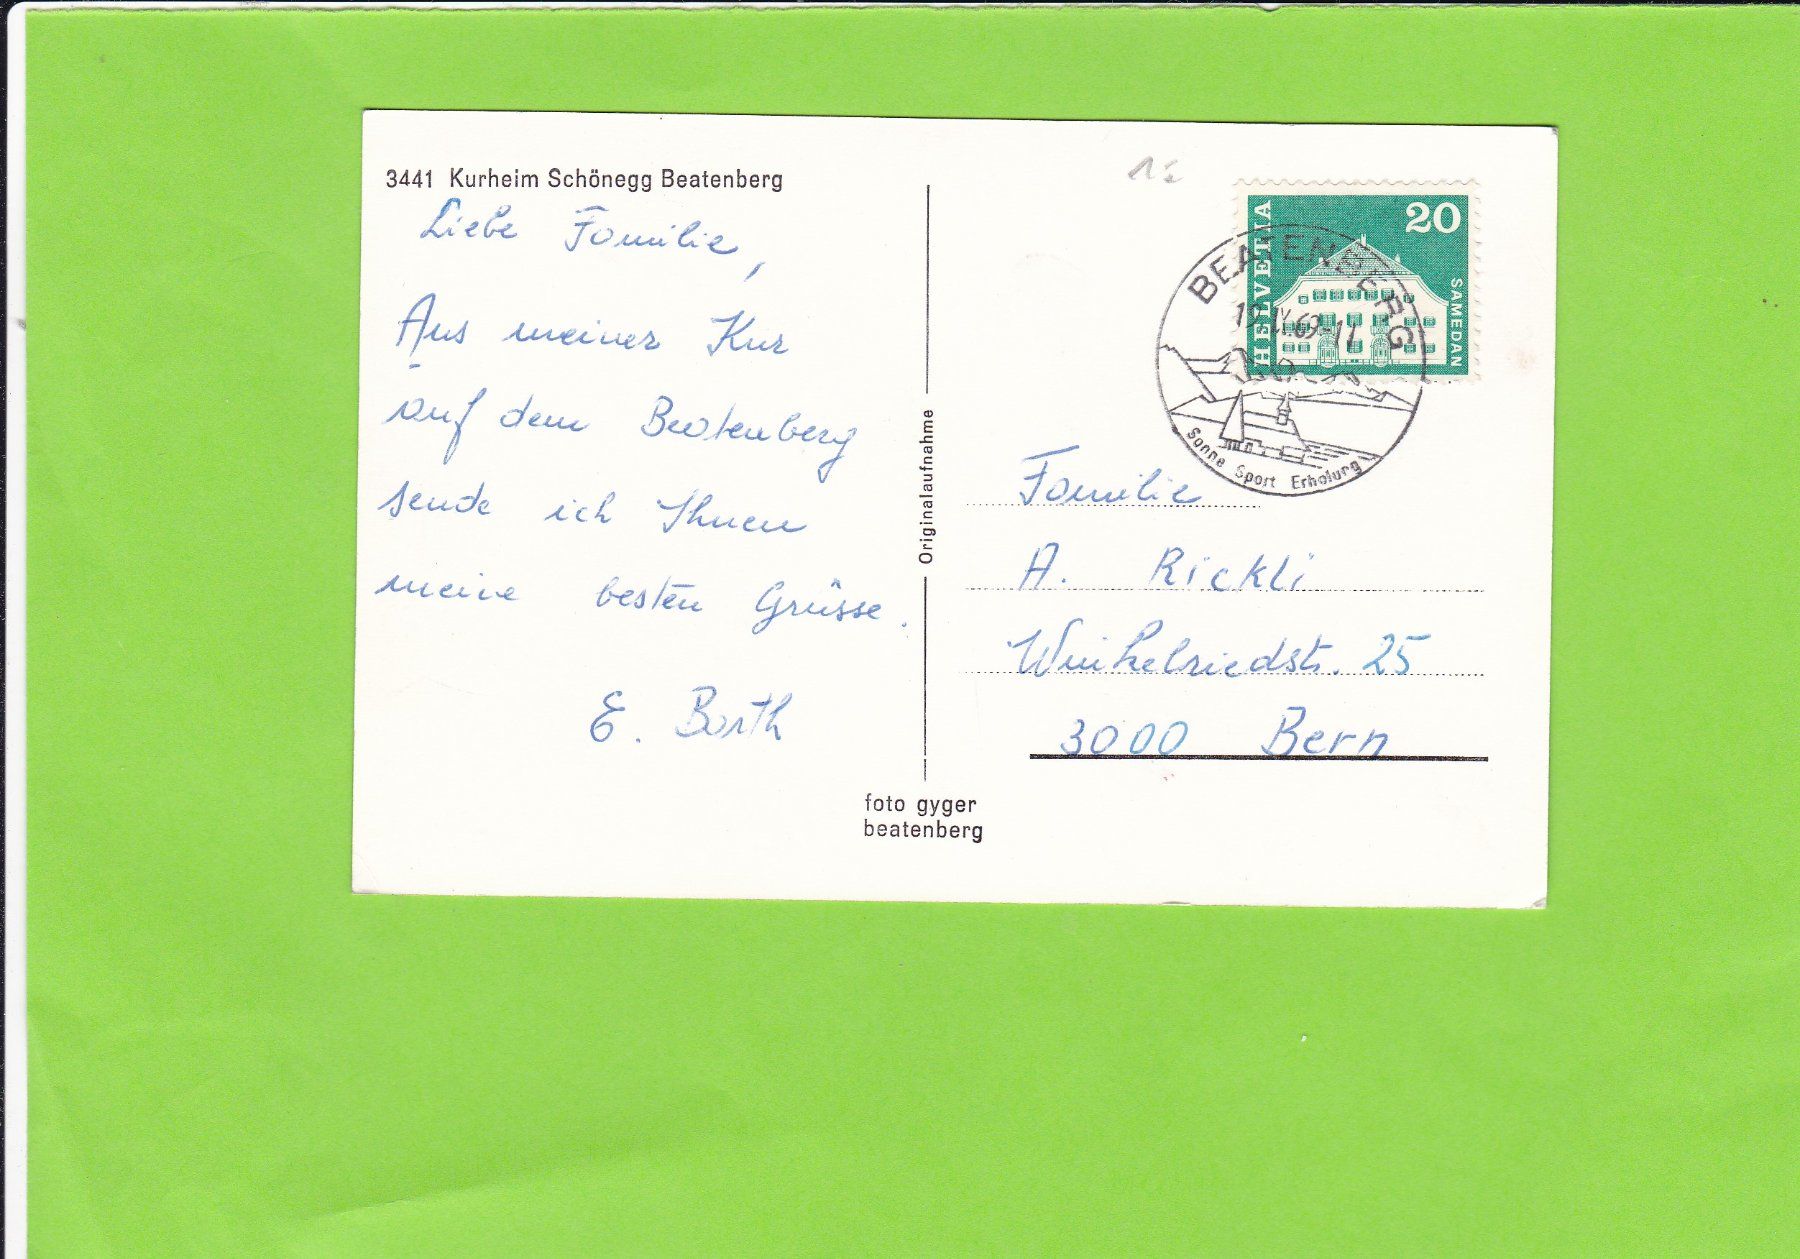 3441 Kurheim Schönegg Beatenberg
Liebe Familie,
Aus meiner Kur
auf dem Beatenberg
sende ich Ihnen
meine besten Grüsse.
E. Barth
Originalaufnahme
foto gyger
beatenberg
HELVETIA
20
SAMEDAN
BEATENBERG
Sonne Sport Erholung
Familie
A. Rickli
Winkelriedstr. 25
3000 Bern